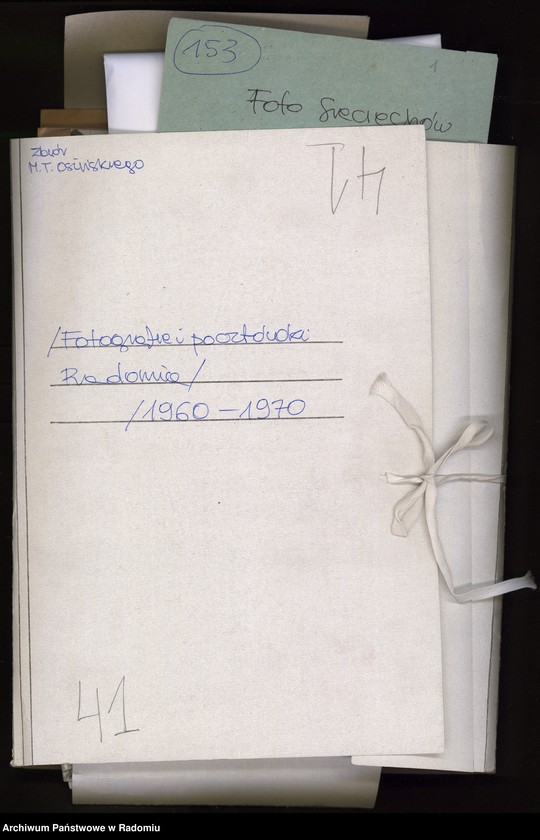 153
1
Foto Sieciechów
Zbiór
M.T. Osińskiego
41
/Fotografie i pocztówki
Radomia/
/1960-1970
41
Archiwum Państwowe w Radomiu